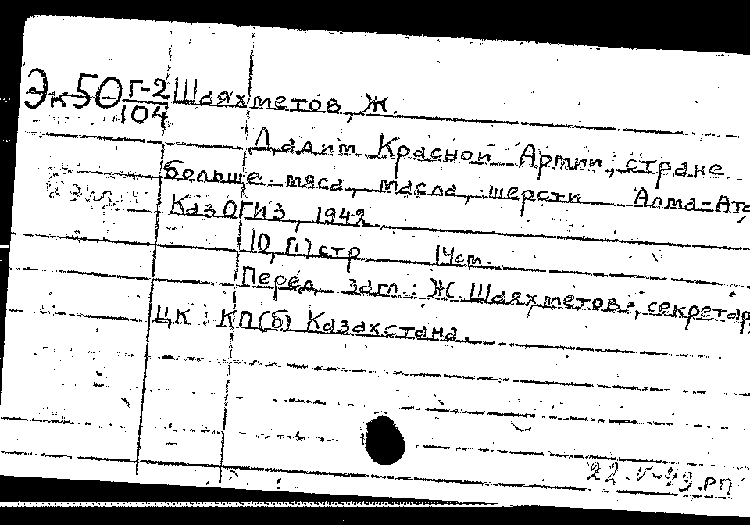 Эк50 Г-2/104 Шаяхметов, Ж.
Дадим Красной Армии, стране
больше мяса, масла, шерсти Алма-Ата,
КазОГИЗ, 1942
10, [1] стр 14см.
Перед загл.: Ж. Шаяхметов, секретарь
ЦК КП(б) Казахстана.
22.V-49.РП